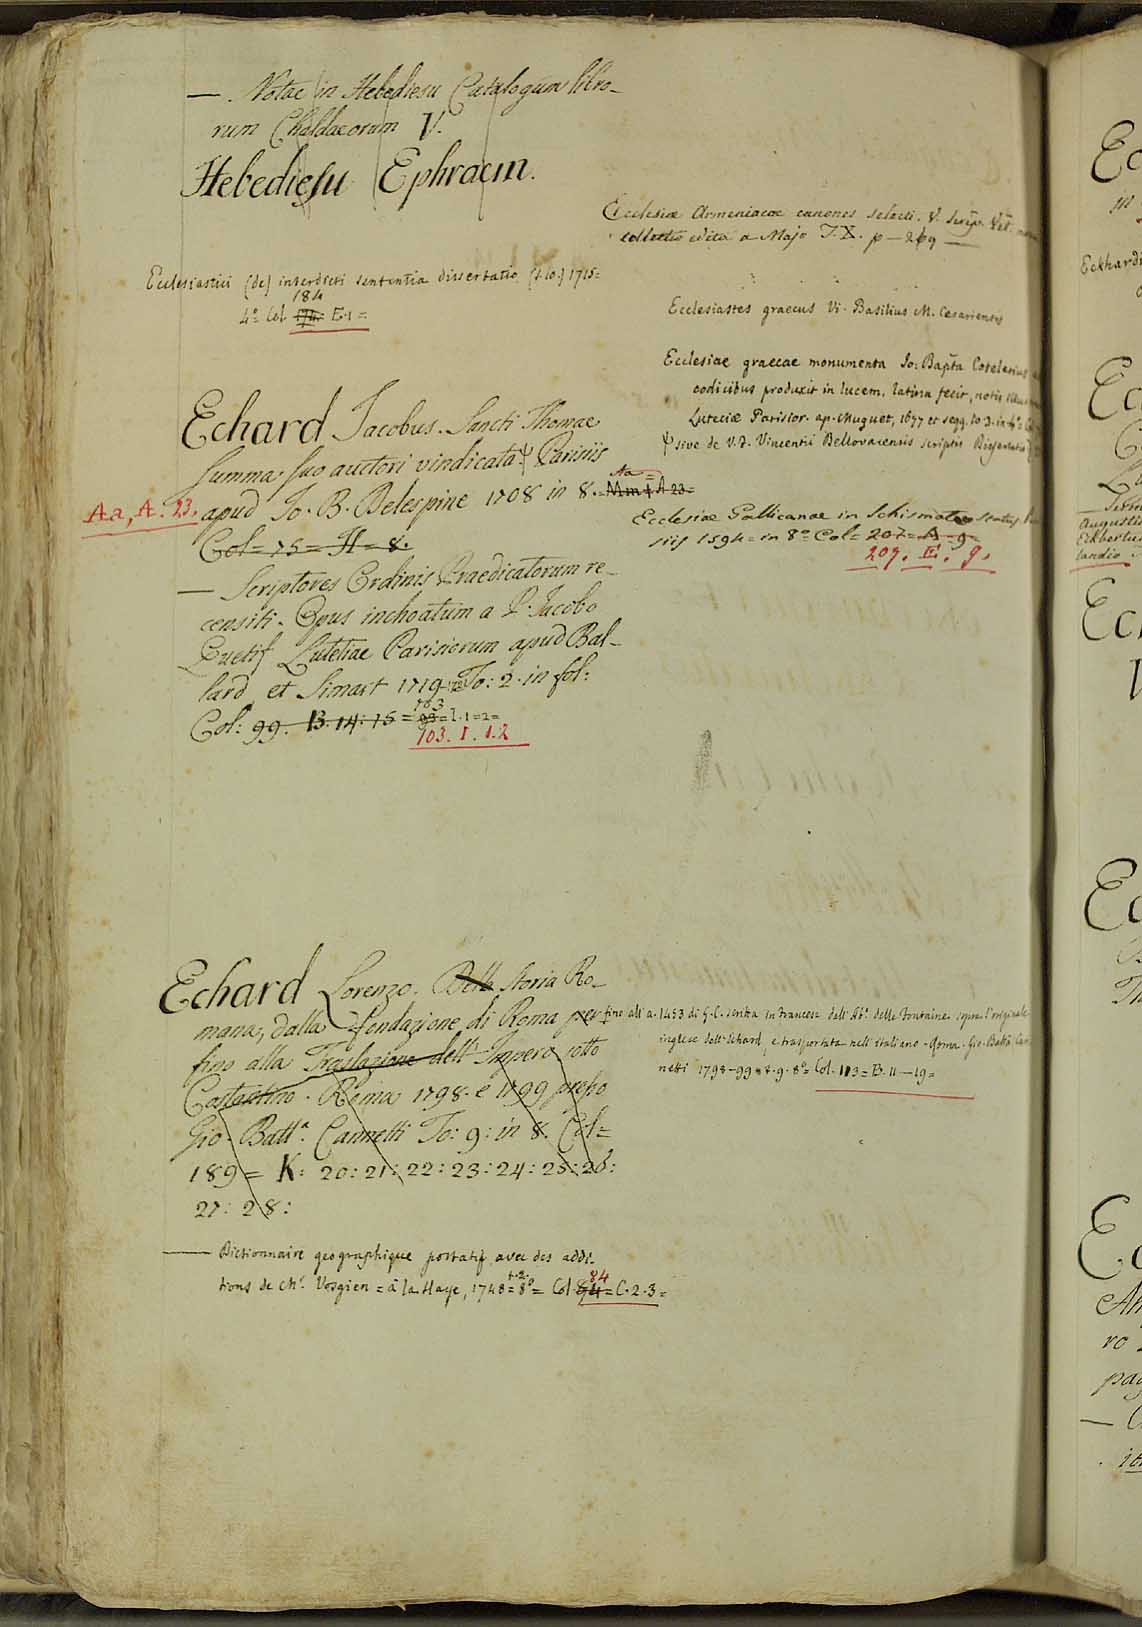 — . Notae in Hebediesu Catalogum libro-
rum Chaldaeorum V.
Hebediesu Ephraem.
Ecclesiastici (de) interdicti sententia dissertatio (s.lo.) 1715=
184
4º Col 174 = E.1=
Echard Jacobus. Sancti Thomae
Summa suo auctori vindicata Ψ Parisiis
Aa, A. 23. apud Jo. B. Delespine 1708 in 8. = Mm + A 23 =
Aa =
Col = 75 = H = 8.
— Scriptores Ordinis Praedicatorum re-
censiti. Opus inchoatum a P. Jacobo
Quetif Lutetiae Parisiorum apud Bal-
lard et Simart 1719 To: 2. in fol:
103
Col: 99. B. 14: 15 = 93 = I.1=2=
103. I. 1.2
Echard Lorenzo. Della Storia Ro-
mana, dalla fondazione di Roma per
fino alla Traslazione dell' Impero sotto
Costantino. Roma 1798. e 1799 presso
Gio. Battª. Cannetti To: 9: in 8. Col=
189 = K: 20: 21: 22: 23: 24: 25: 26:
27: 28:
— Dictionnaire geographique portatif avec des addi-
tions de Mr. Vosgien = à la Haye, 1748 = 8º = Col 84 = C.2.3=
t.2.
84
Ecclesiæ Armeniacae canones selecti. V. Scrip. Vet.
collectio edita a Majo T. X. p — 269 —
Ecclesiastes graecus Vi. Basilius M. Cesariensis
Ecclesiae graecae monumenta Jo: Bapta Cotelerius
codicibus produxit in lucem, latina fecit, notis
Luteciæ Parisior. ap. Muguet, 1677 et segg. to 3. in 4º
Ψ sive de V. F. Vincentii Bellovacensis scriptis Dissertatio
Ecclesiæ Gallicanae in Schismate status
siis 1594 = in 8º = Col = 207 = A = 9 =
209. E. 9.
fino all' a. 1453 di G. C. scritta in Francese dall' Ab. delle Fontaine sopra l'originale
inglese dell' Echard, e trasportata nell' italiano. Roma. Gio. Batta Can
netti 1798-99 = 8. 9. 8º = Col. 113 = B. 11 — 19 =